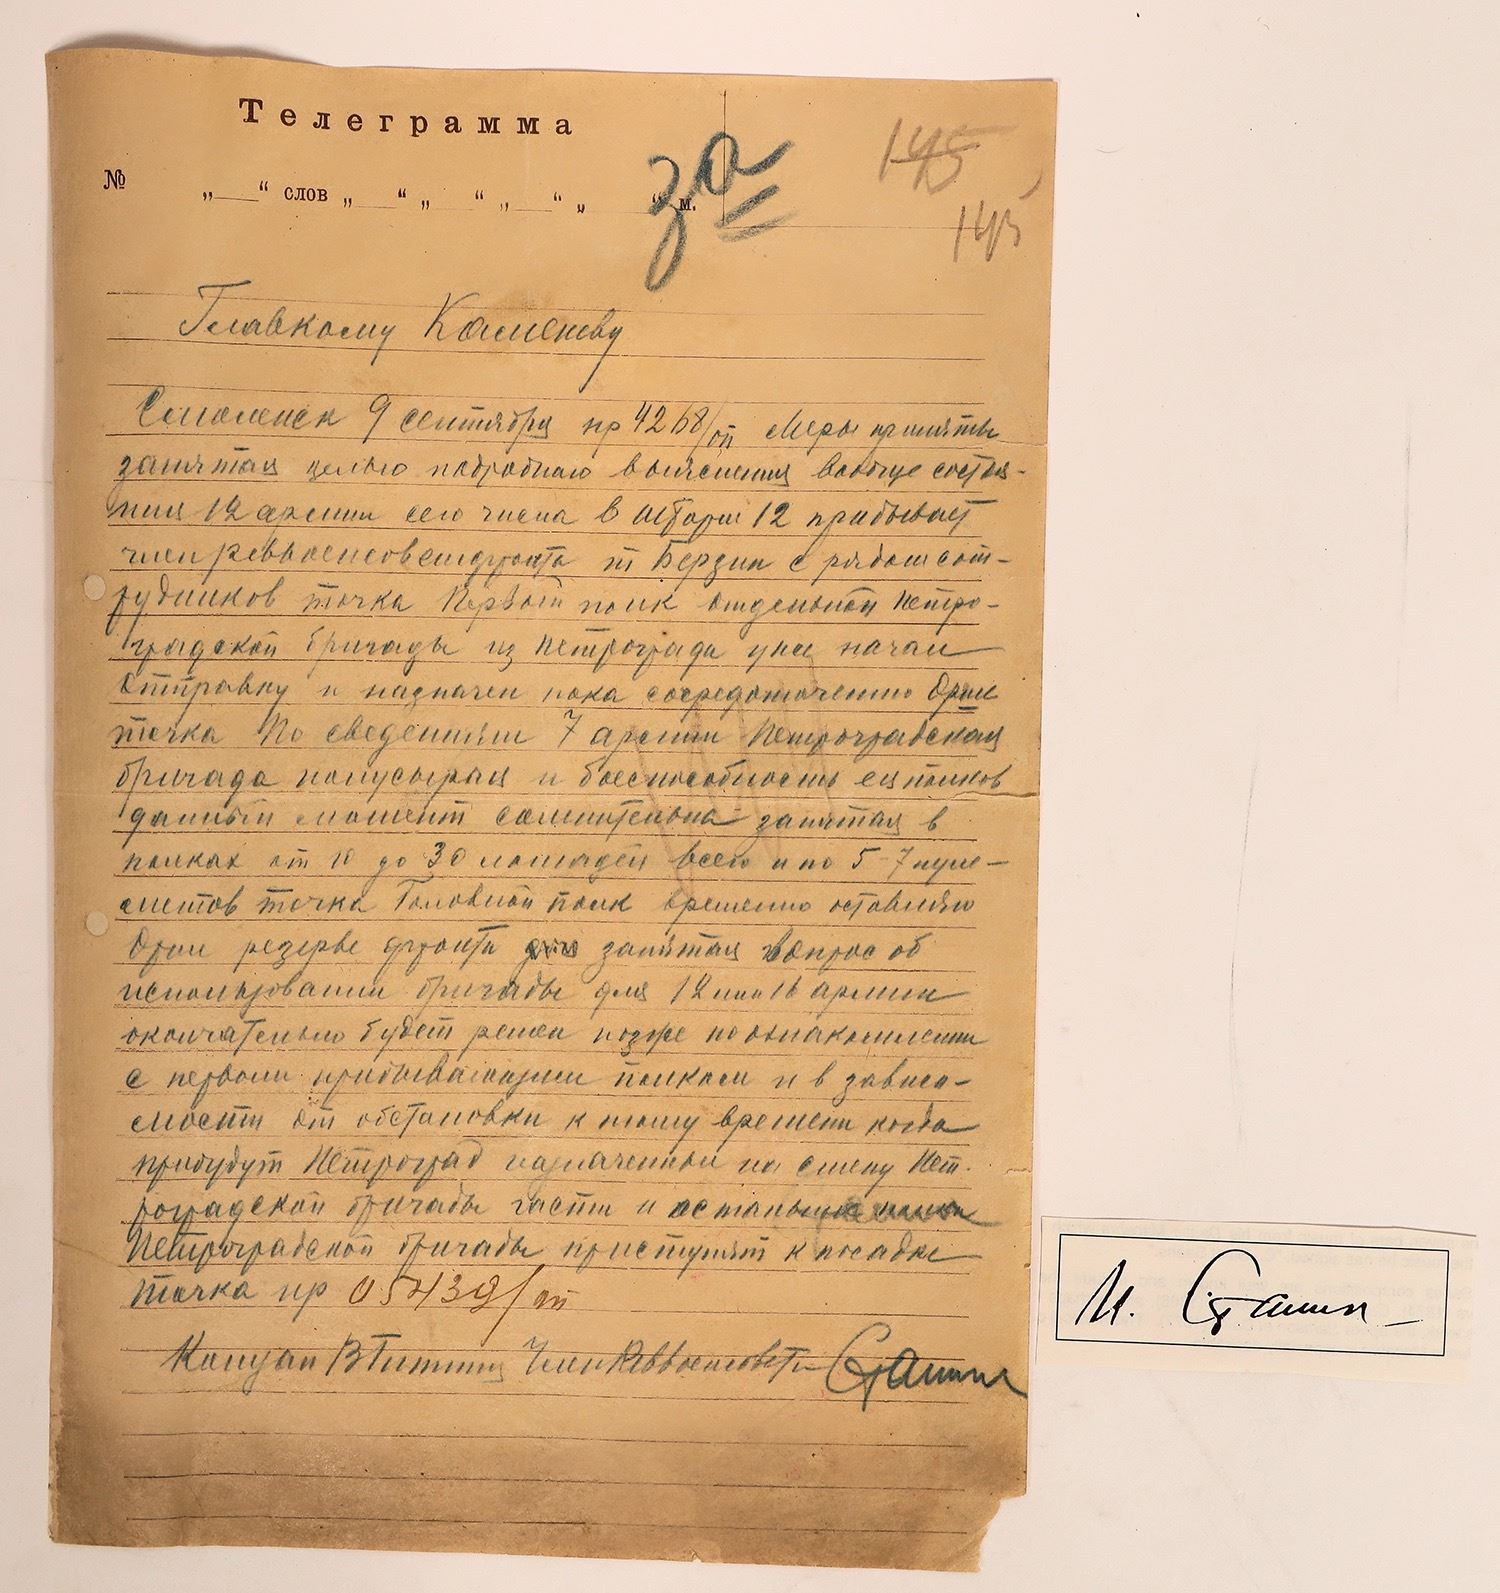 Телеграмма
за
145
№ „ “ слов „ “ „ “ „ “ „ “ м.
145
Главкому Каменеву
Смоленск 9 сентября нр 4268/оп Меры приняты
запятая целью подробного выяснения вообще состоя-
ния 12 армии сего числа в штарм 12 прибывает
член реввоенсовета фронта т Берзин с рядом сот-
рудников точка Первый полк отдельной Петро-
градской бригады из Петрограда уже начал
отправку и назначен пока сосредоточению
точка По сведениям 7 армии Петроградская
бригада полусырая и боеспособность ея полков
данный момент сомнительна запятая в
полках от 10 до 30 лошадей всего и по 5-7 пуле-
метов точка Головной полк временно оставляю
резерве фронта запятая вопрос об
использовании бригады для 12 или 16 армии
окончательно будет решен позже по ознакомлении
с первым прибывающим полком и в зависи-
мости от обстановки к тому времени когда
прибудут Петроград назначенныи на смену Пет-
роградской бригады части и остальные полки
Петроградской бригады приступят к посадке
точка нр 05439/оп
Комзап В Гиттис Член Реввоенсовета Сталин
И. Сталин